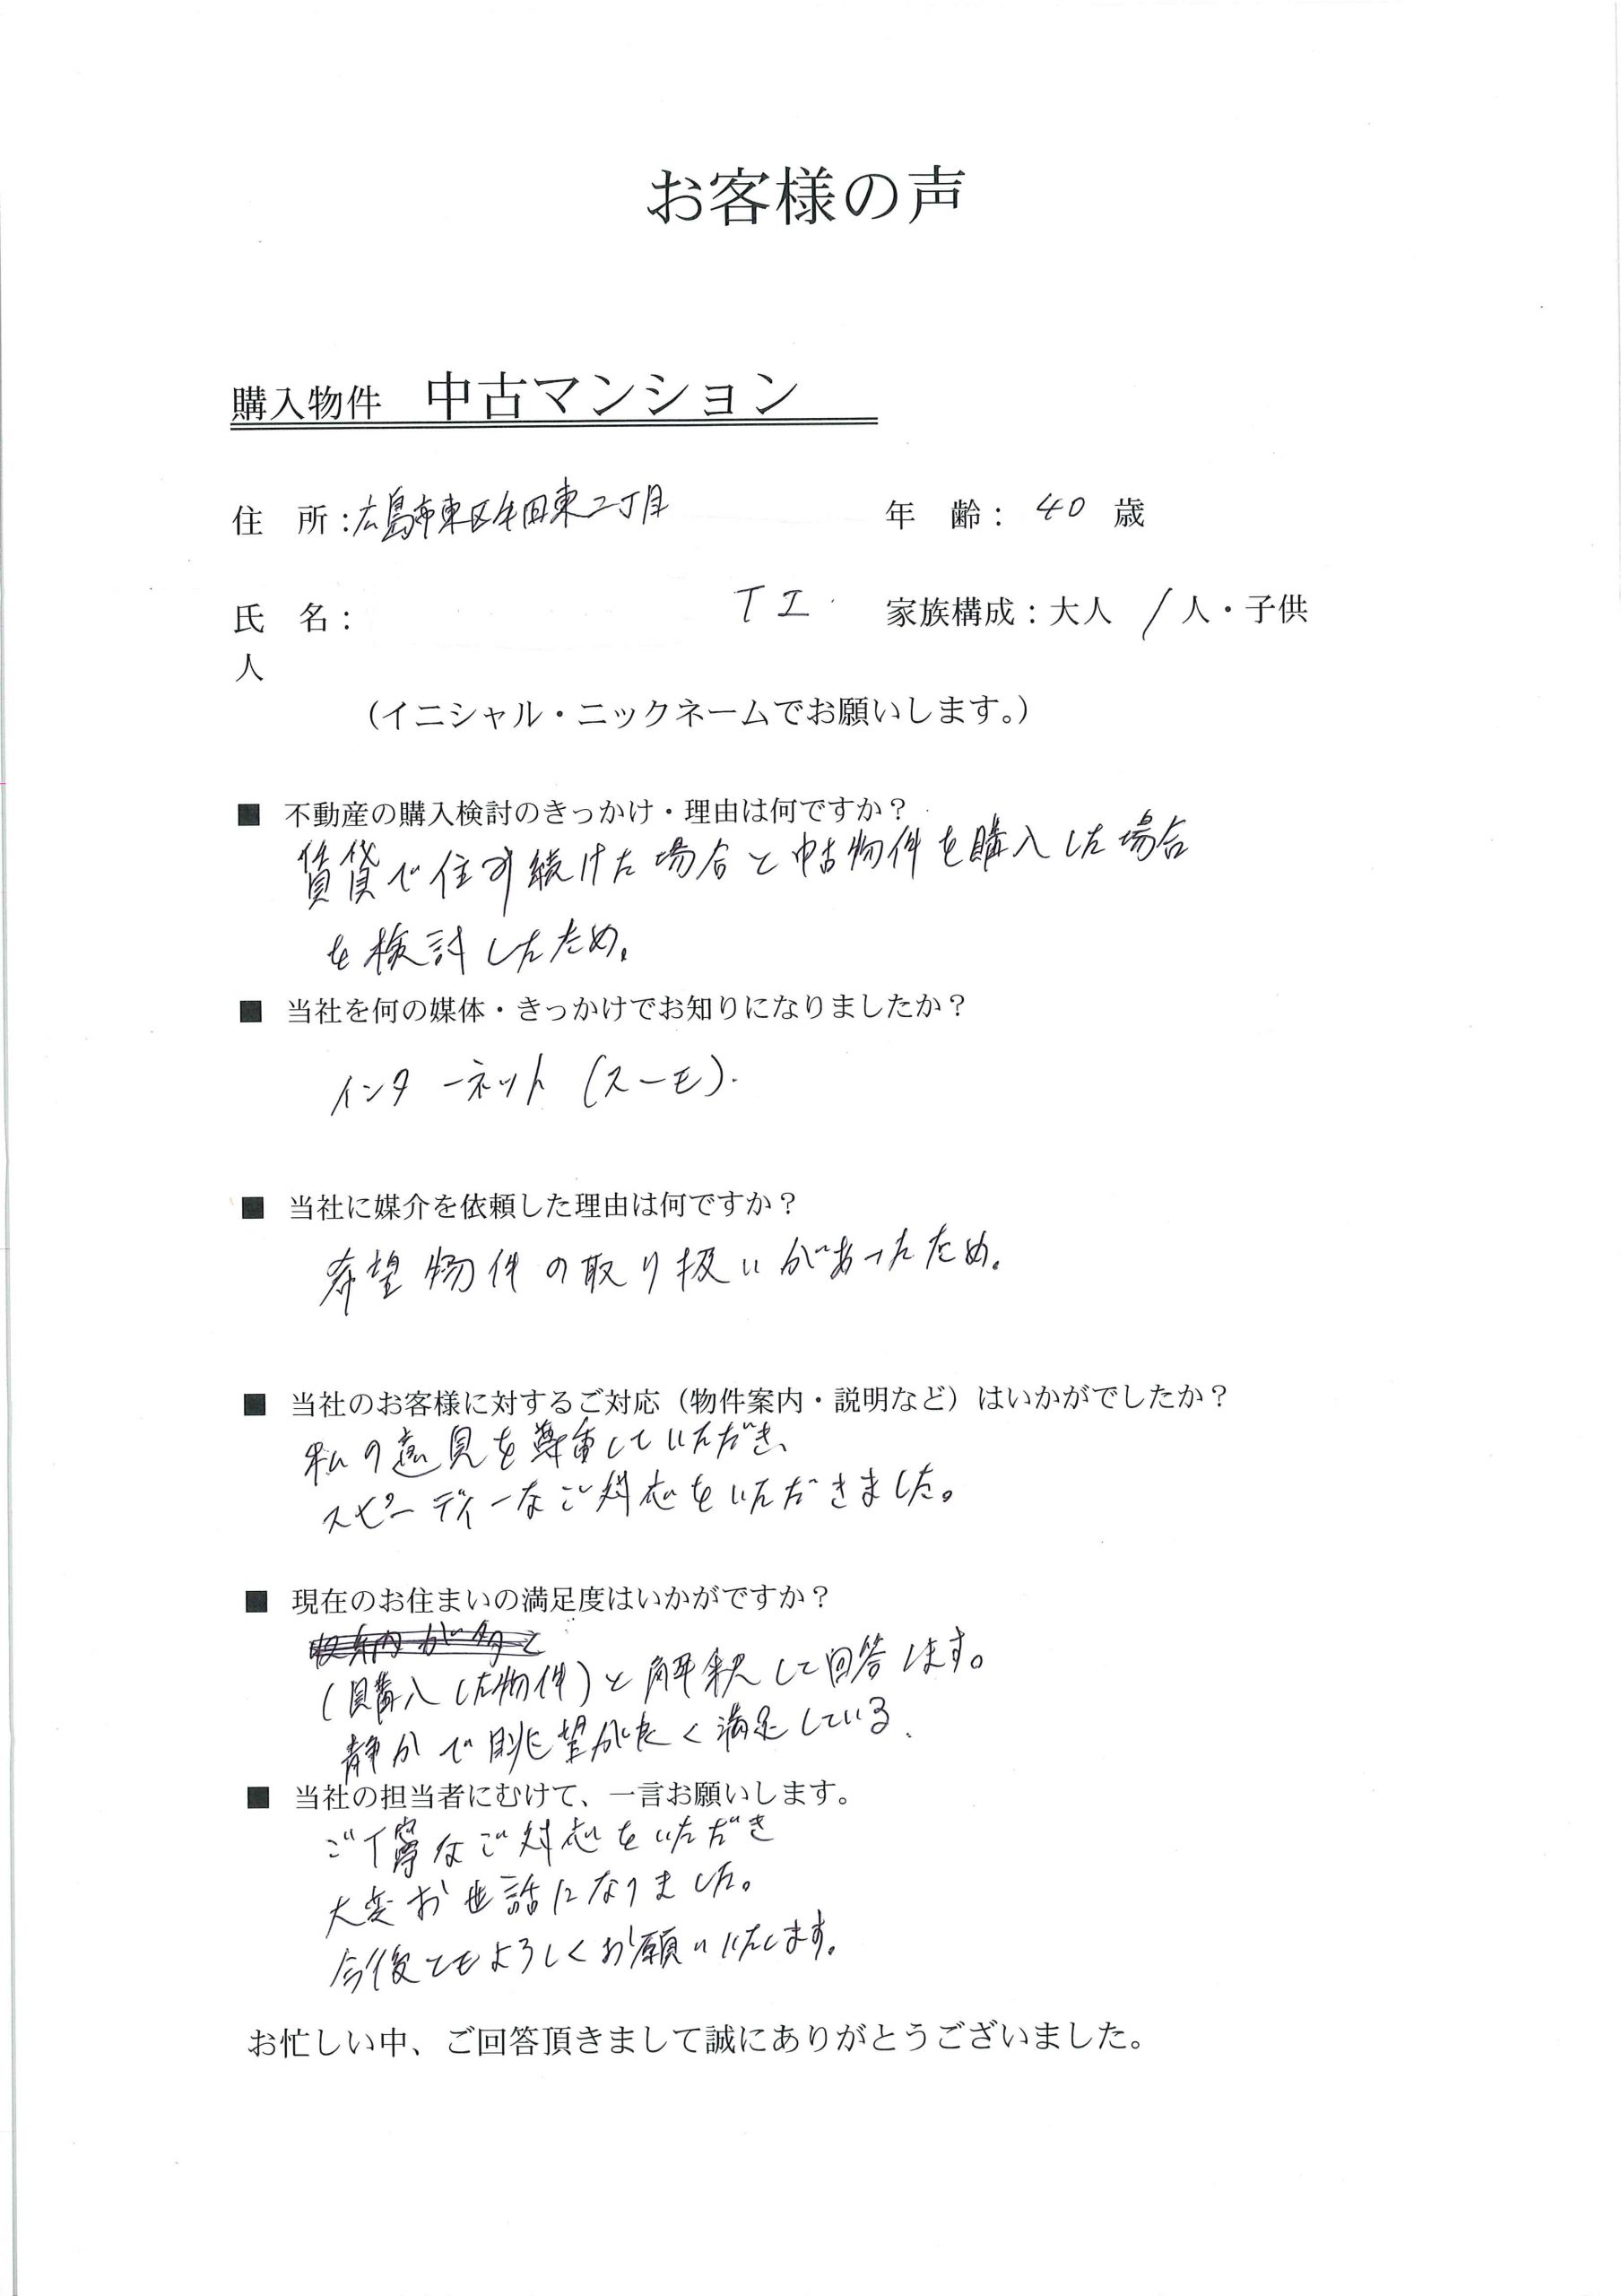 お客様の声
購入物件 中古マンション
住 所：広島市東区牛田東二丁目 年 齢： 40 歳
氏 名： T I. 家族構成：大人 / 人・子供
人
（イニシャル・ニックネームでお願いします。）
■ 不動産の購入検討のきっかけ・理由は何ですか？
賃貸で住み続けた場合と中古物件を購入した場合
を検討したため。
■ 当社を何の媒体・きっかけでお知りになりましたか？
インターネット（スーモ）.
■ 当社に媒介を依頼した理由は何ですか？
希望物件の取り扱いがあったため。
■ 当社のお客様に対するご対応（物件案内・説明など）はいかがでしたか？
私の意見を尊重していただき、
スピーディーなご対応をいただきました。
■ 現在のお住まいの満足度はいかがですか？
(購入した物件)と解釈して回答します。
静かで眺望が良く満足している.
■ 当社の担当者にむけて、一言お願いします。
ご丁寧なご対応をいただき
大変お世話になりました。
今後ともよろしくお願いいたします。
お忙しい中、ご回答頂きまして誠にありがとうございました。